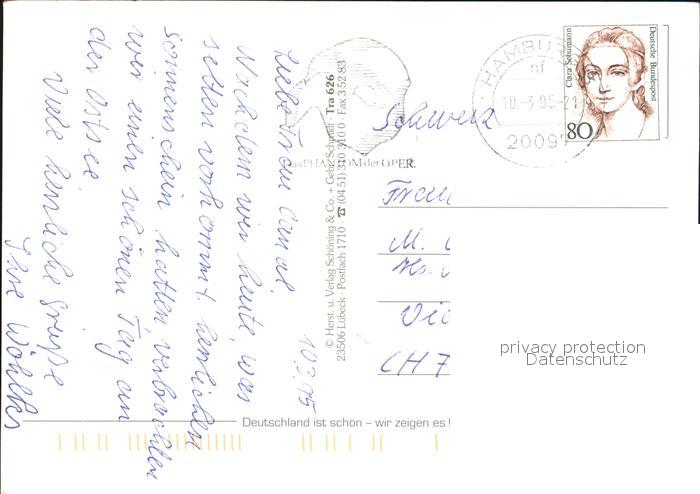 10.3.95
Liebe Frau Canal
Nachdem wir heute, was
selten vorkommt, herrlichen
Sonnenschein hatten, verbrachten
wir einen schönen Tag an
der Ostsee.
Viele herzliche Grüße
Ihre
© Herst. u. Verlag Schöning & Co. + Gebr. Schmidt · Tra 626
23506 Lübeck · Postfach 1710 · ☎ (04 51) 3 10 31 00 · Fax 3 52 83
Das PHANTOM der OPER.
HAMBURG
nf
10.-3.95-21
2009
Clara Schumann
Deutsche Bundespost
80
Schweiz
Frau
M.
CH 7
privacy protection
Datenschutz
Deutschland ist schön – wir zeigen es!